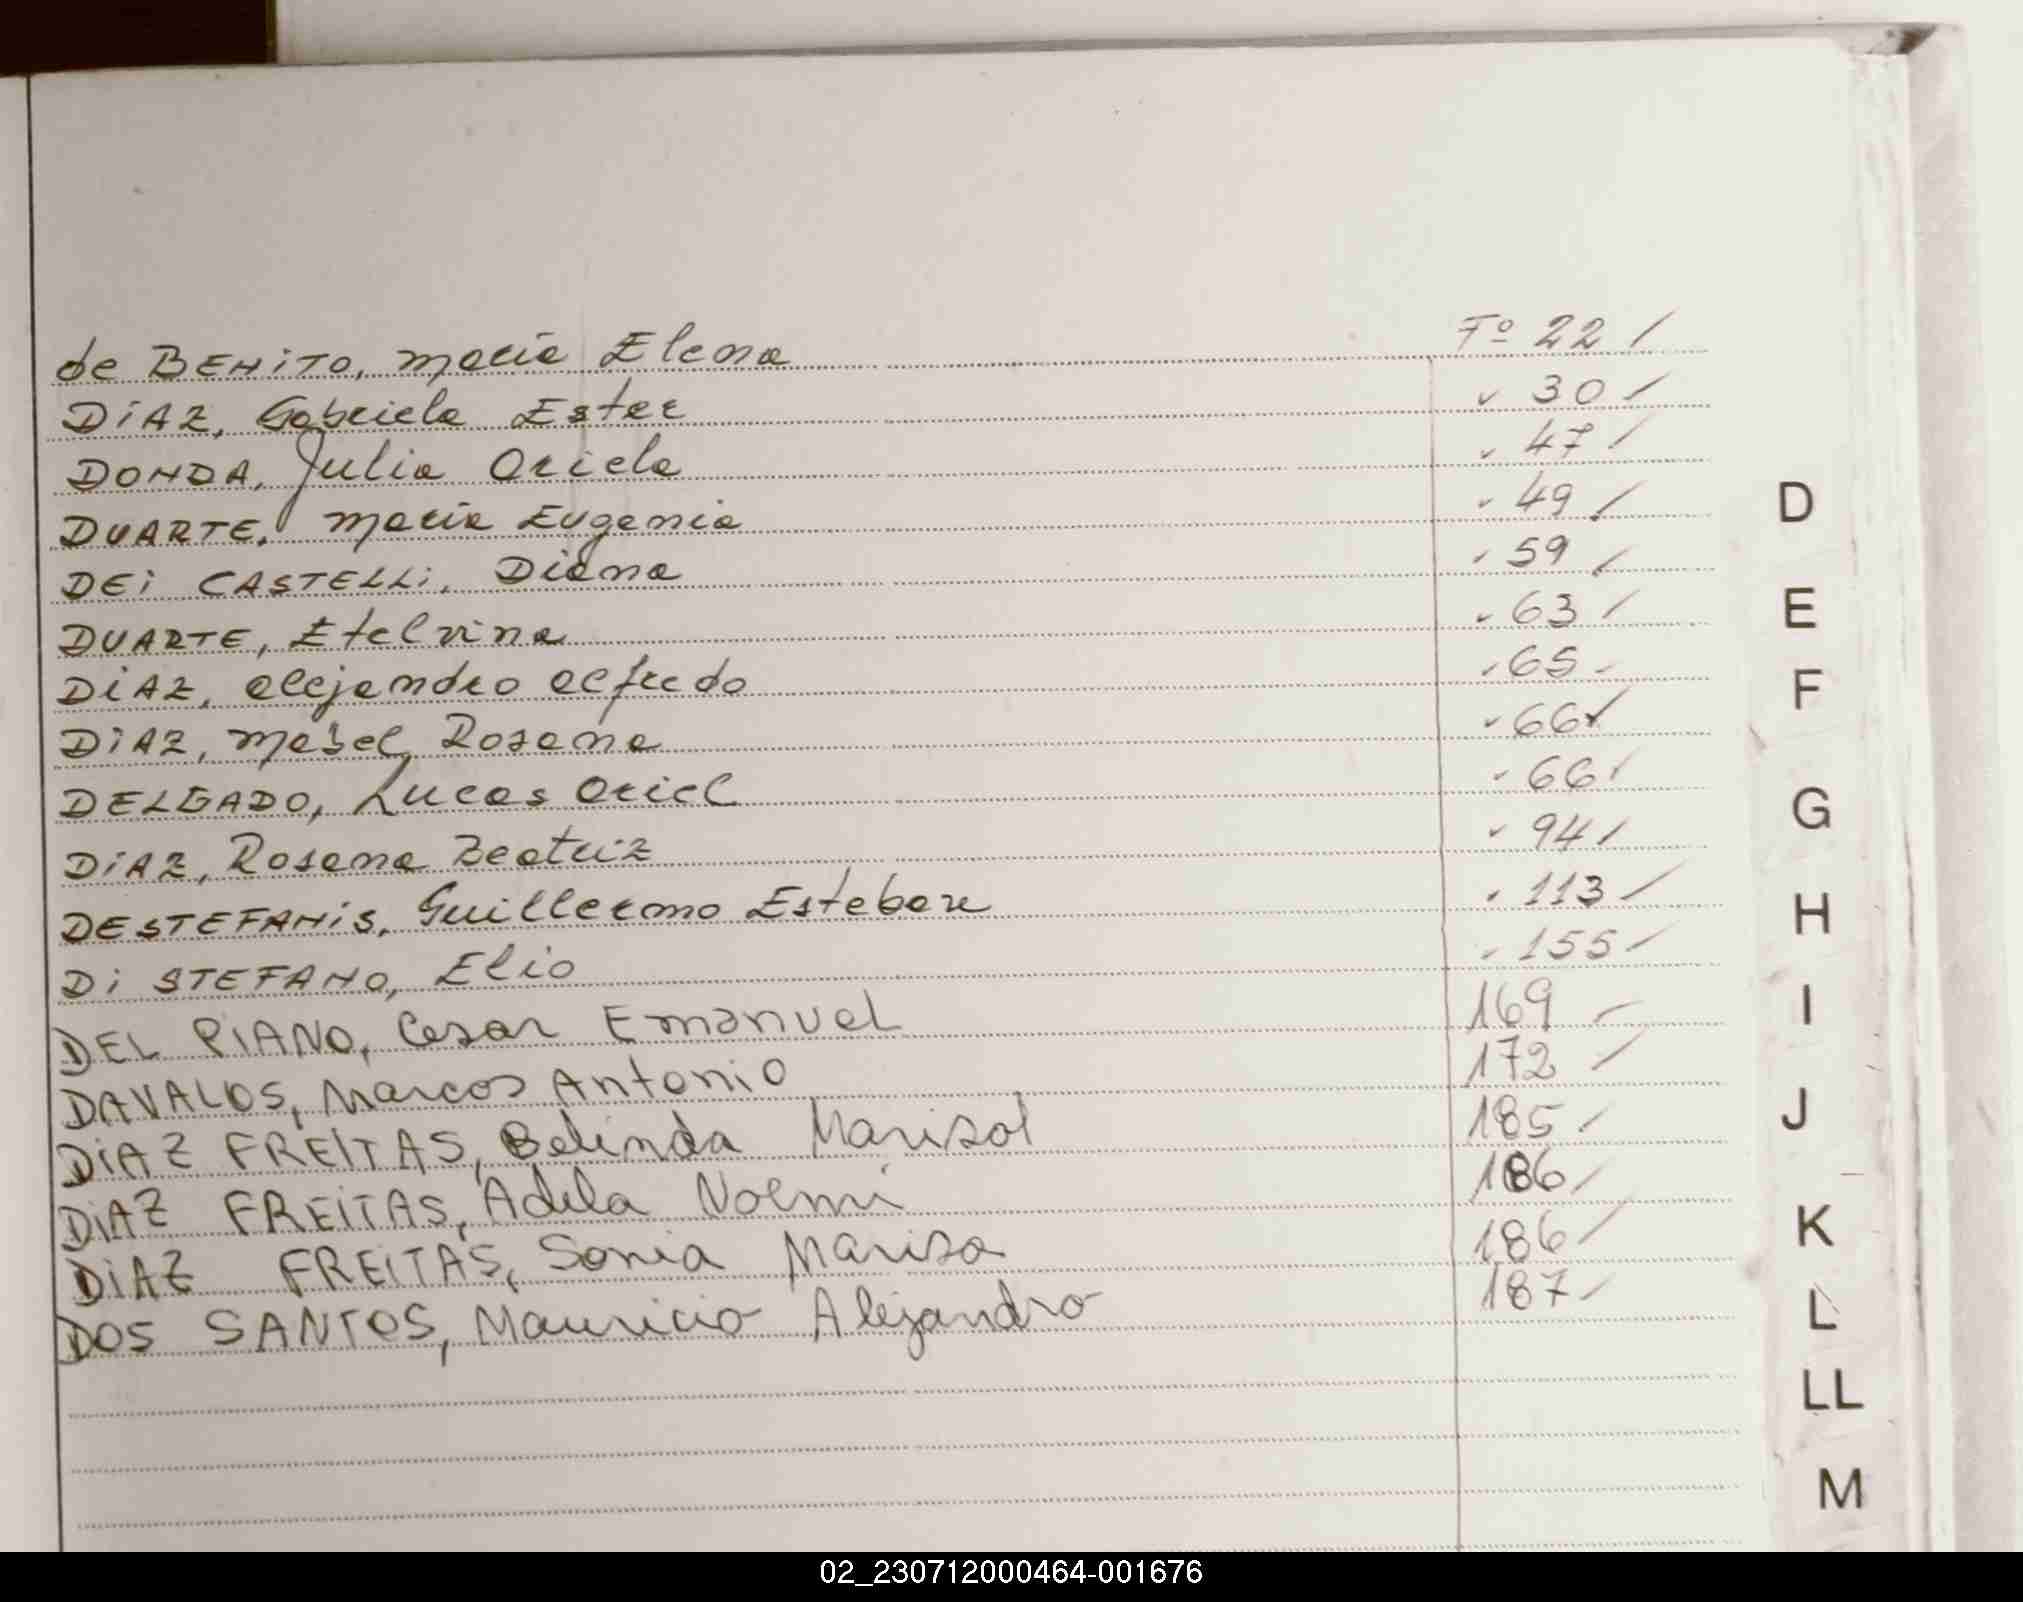 de BENiTO, María Elena Fº 22 /
DiAZ, Gabriela Ester " 30 /
DONDA, Julia Oriela " 47 /
DUARTE, María Eugenia " 49 /
DEi CASTELLi, Diana " 59 /
DUARTE, Etelvina " 63 /
DiAZ, Alejandro Alfredo " 65 -
DiAZ, Mabel Rosana " 66 /
DELGADO, Lucas Oriel " 66 /
DiAZ, Rosana Beatriz " 94 /
DESTEFANiS, Guillermo Esteban " 113 /
Di STEFANO, Elio " 155 /
DEL PIANO, Cesar Emanuel 169 /
DAVALOS, Marcos Antonio 172 /
DiAZ FREiTAS, Belinda Marisol 185 /
DiAZ FREiTAS, Adela Noemí 186 /
DiAZ FREiTAS, Sonia Marisa 186 /
DOS SANTOS, Mauricio Alejandro 187 /
D
E
F
G
H
I
J
K
L
LL
M
02_230712000464-001676